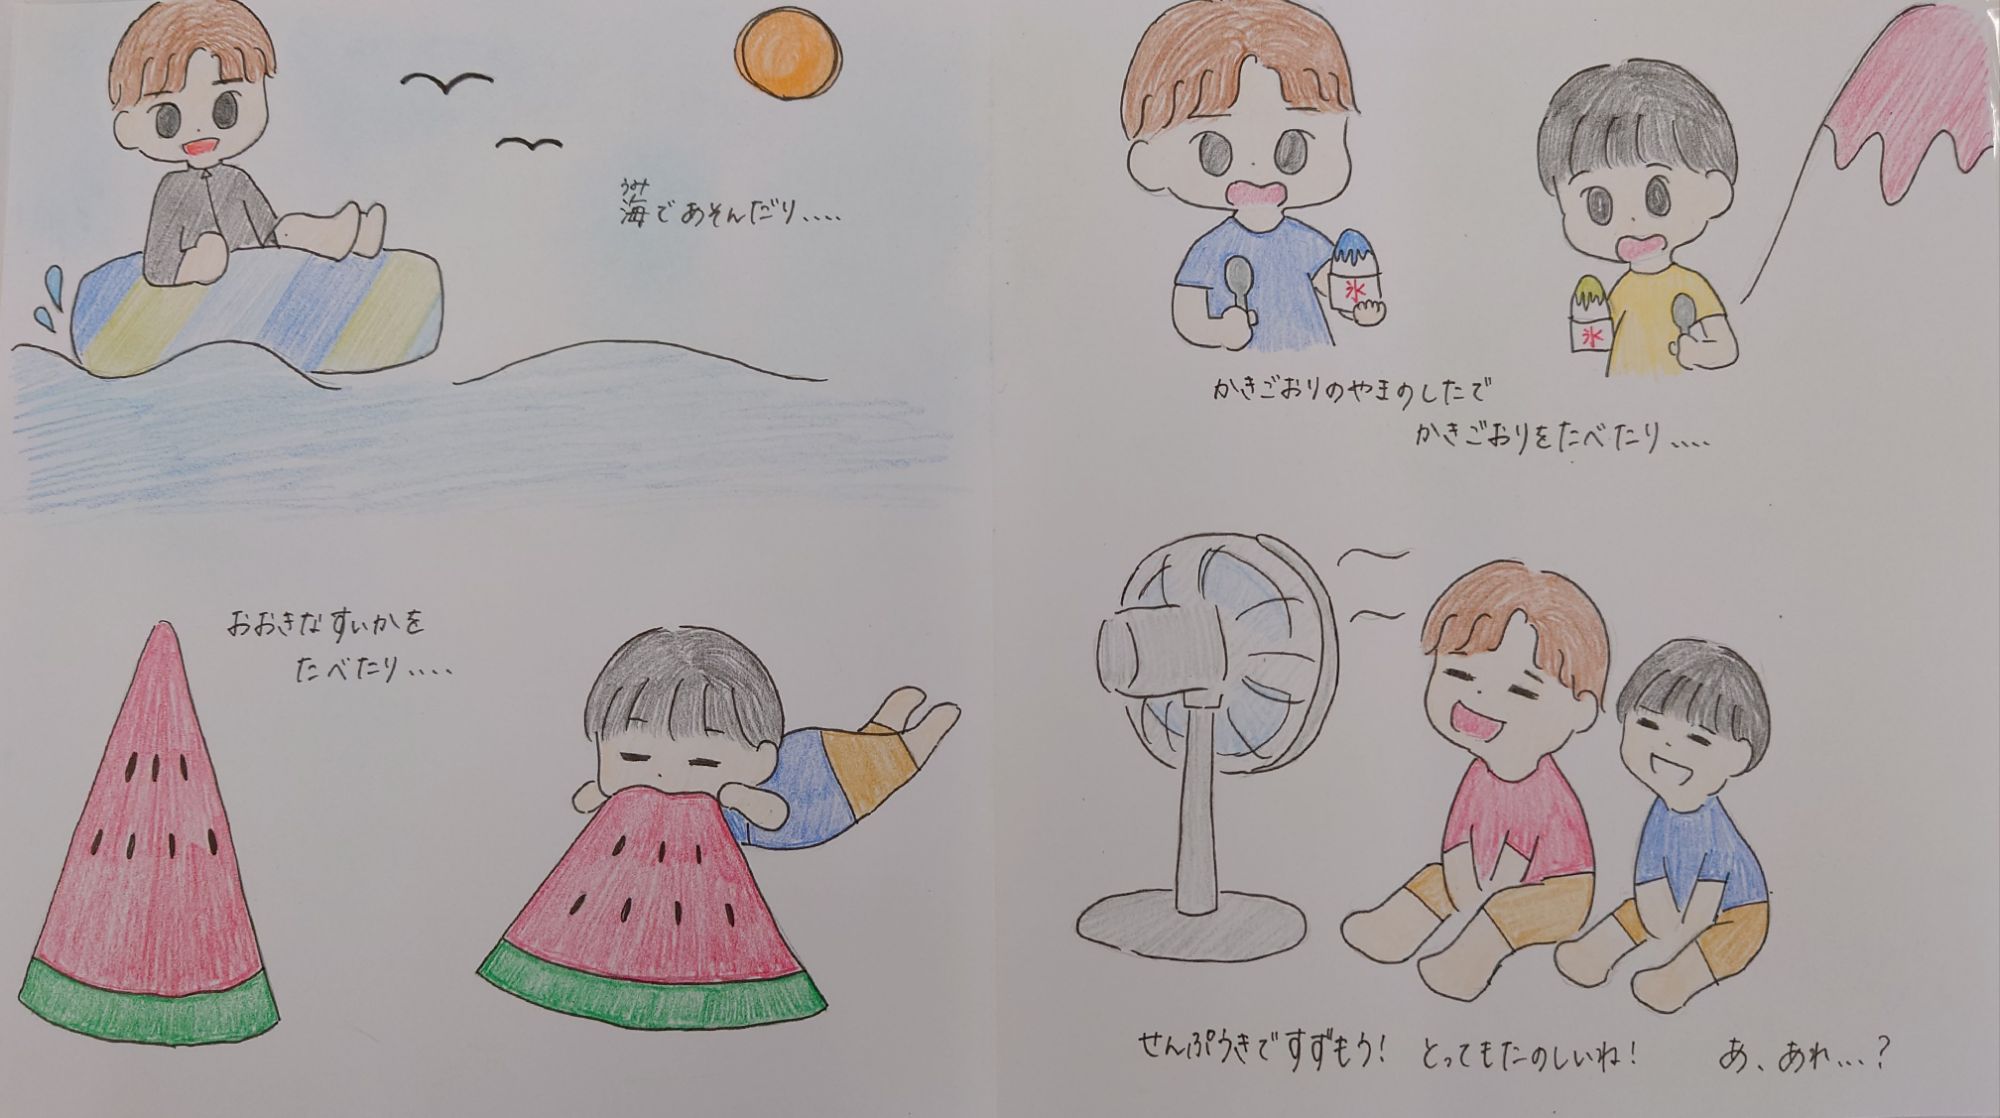 うみ
海であそんだり....
おおきなすいかを
たべたり....
氷
氷
かきごおりのやまのしたで
かきごおりをたべたり....
せんぷうきですずもう! とってもたのしいね! あ、あれ...?